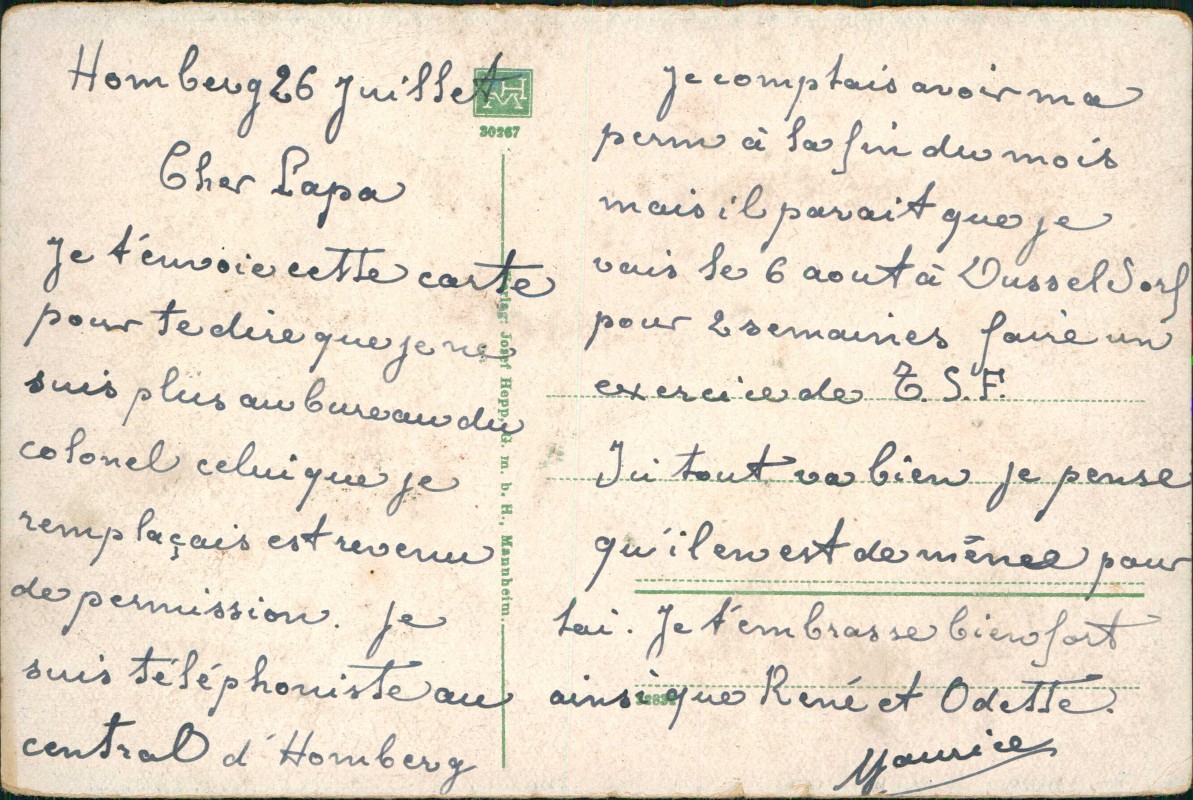 Homberg 26 Juillet
Cher Papa
Je t'envoie cette carte
pour te dire que je ne
suis plus au bureau du
colonel celui que je
remplaçais est revenu
de permission. Je
suis téléphoniste au
central d'Homberg
HM
30267
Verlag: Josef Hepp, G. m. b. H., Mannheim.
Je comptais avoir ma
perm à la fin du mois
mais il parait que je
vais le 6 aout à Dusseldorf
pour 2 semaines faire un
exercice de T.S.F.
Ici tout va bien je pense
qu'il en est de même pour
toi. Je t'embrasse bien fort
ainsi que René et Odette.
Maurice